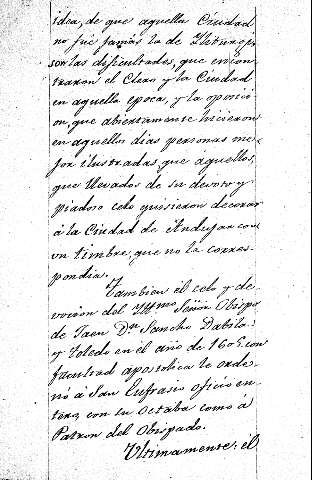 idea, de que aquella Ciudad
no fué jamás la de Iliturgi,
son las dificultades, que encon
traron el Clero y la Ciudad
en aquella epoca, y la oposici
on, que abiertamente hicieron
en aquellos dias personas me
jor ilustradas, que aquellos,
que llevados de su devoto y
piadoso celo quisieron decorar
á la Ciudad de Andujar con
un timbre, que no la corres-
pondia.
Tambien el celo y de
vocion del Ill.mo Señor Obispo
de Jaen D.n Sancho Dabila
y Toledo en el año de 1605 con
facultad apostolica le orde-
nó á San Eufrasio oficio en-
tero, con su Octaba como á
Patron del Obispado.
Ultimamente: el